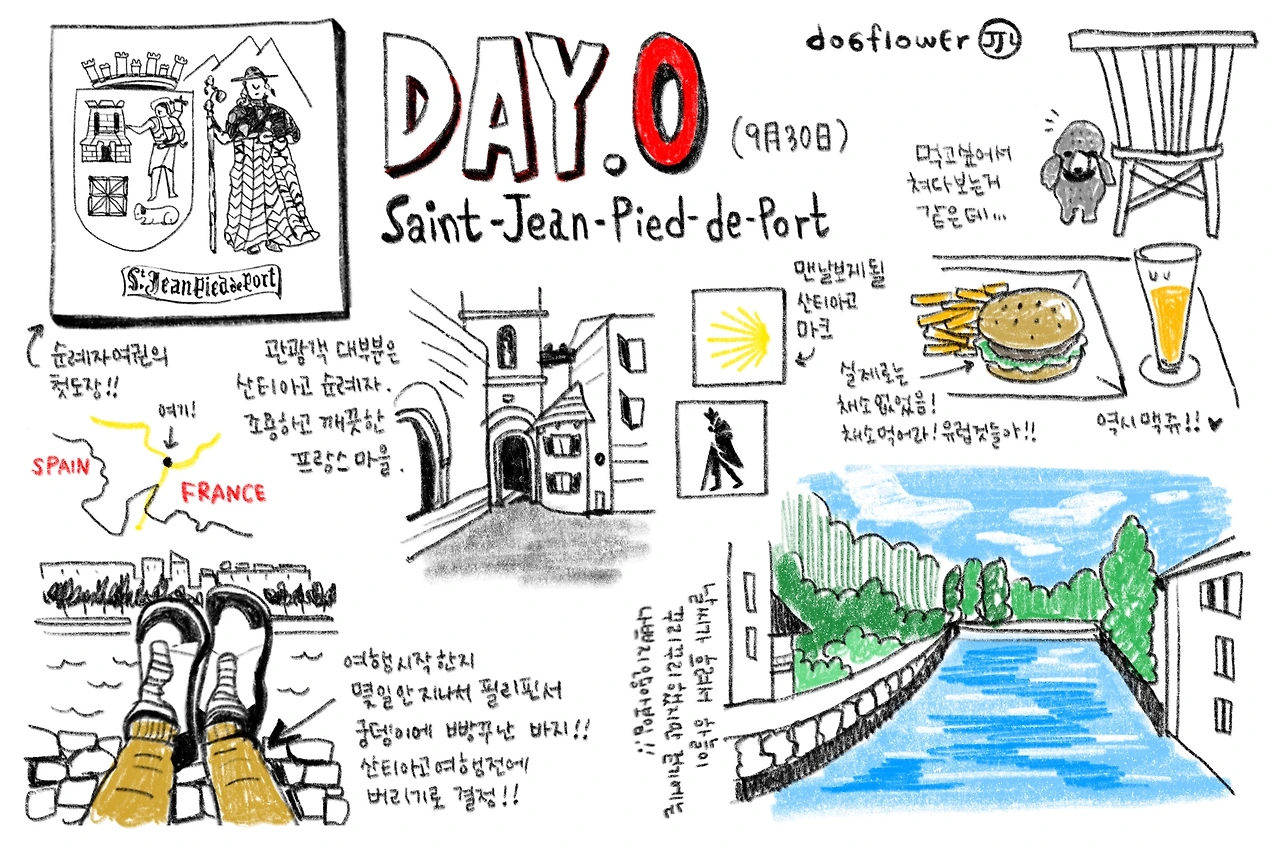 DAY.0
(9月30日)
Saint-Jean-Pied-de-Port
dogflower
JJL
St Jean Pied de Port
순례자여권의
첫도장!!
관광객 대부분은
산티아고 순례자.
조용하고 깨끗한
프랑스 마을.
여기!
SPAIN
FRANCE
맨날보게될
산티아고
마크
먹고싶어서
쳐다보는거
같은데...
실제로는
채소없었음!
채소먹어라! 유럽것들아!!
역시 맥쥬!! ♥
여행시작한지
몇일안지나서 필리핀서
궁뎅이에 빵꾸난 바지!!
산티아고여행전에
버리기로 결정!!
날씨가 흐려서 하늘이
꾸리꾸리했지만